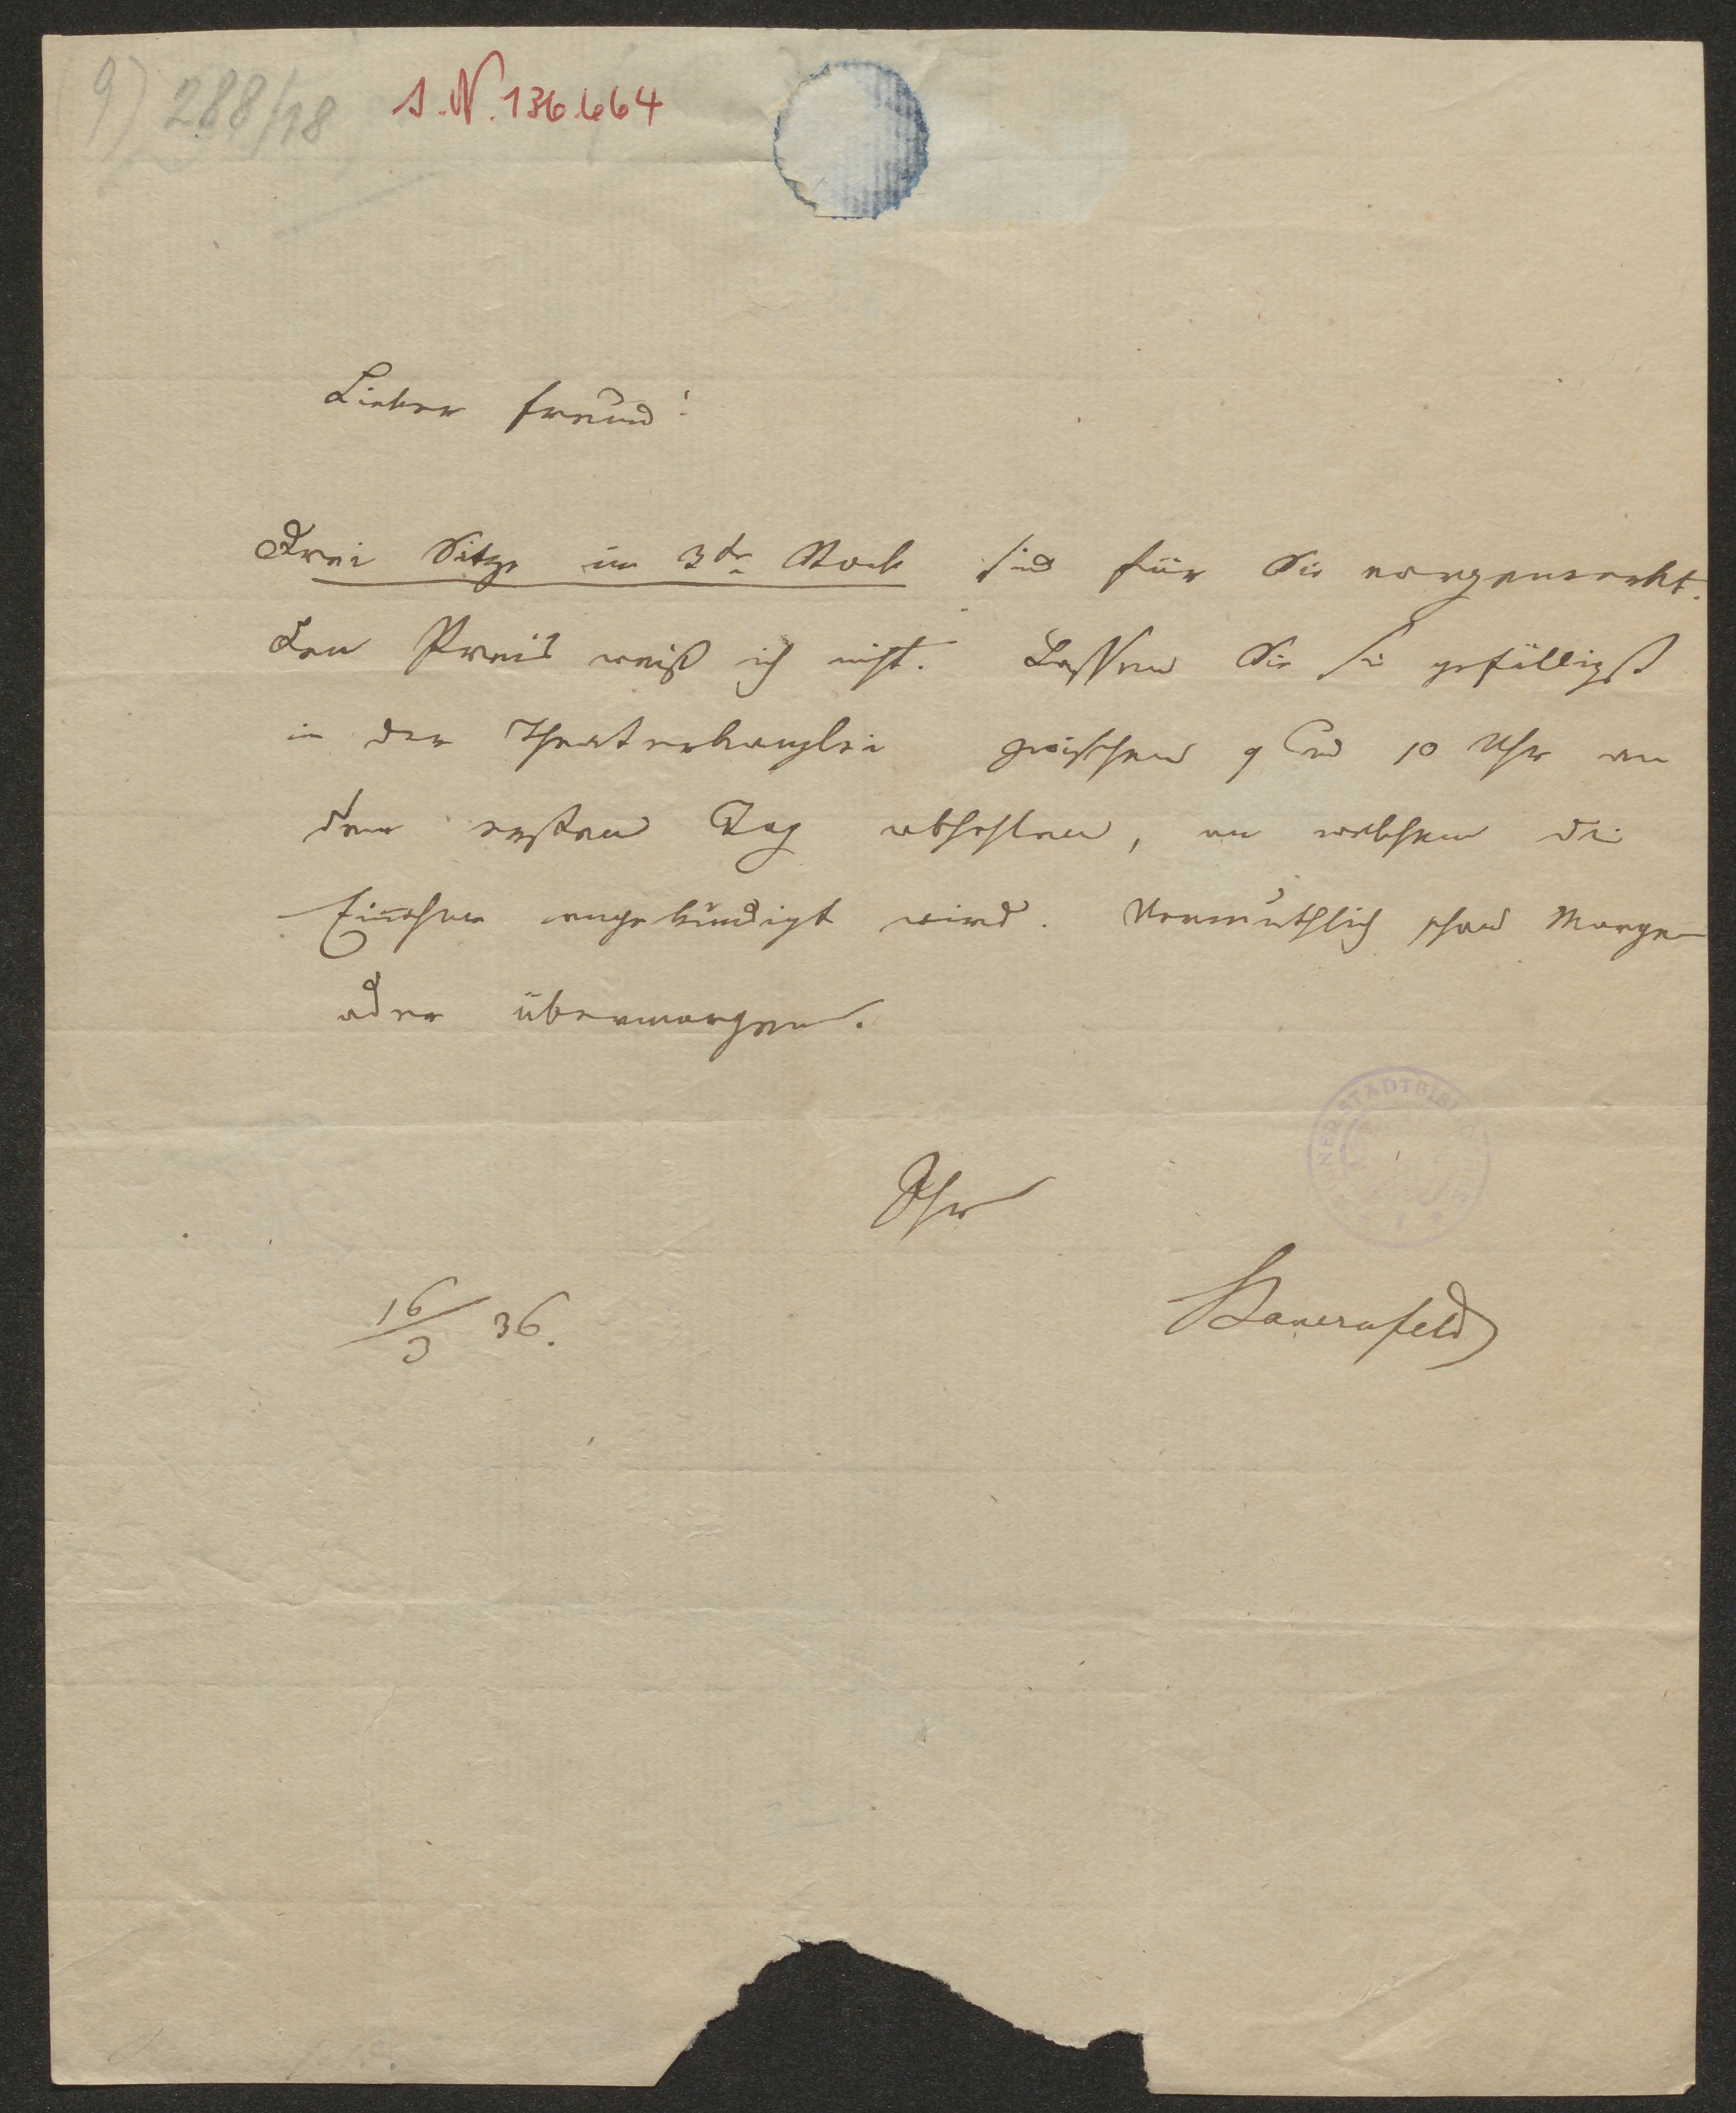 9) 288/18
S.N. 136.664
Lieber Freund!
Drei Sitze im 3tn Stock sind für Sie vorgemerkt.
Den Preis weiß ich nicht. Lassen Sie sie gefälligst
in der Theaterkanzlei zwischen 9 und 10 Uhr an
dem ersten Tag abhohlen, an welchem die
Einnahme angekündigt wird. Vermuthlich schon Morgen
oder übermorgen.
Ihr
NER STADTBIBL
16/3 36.
Bauernfeld